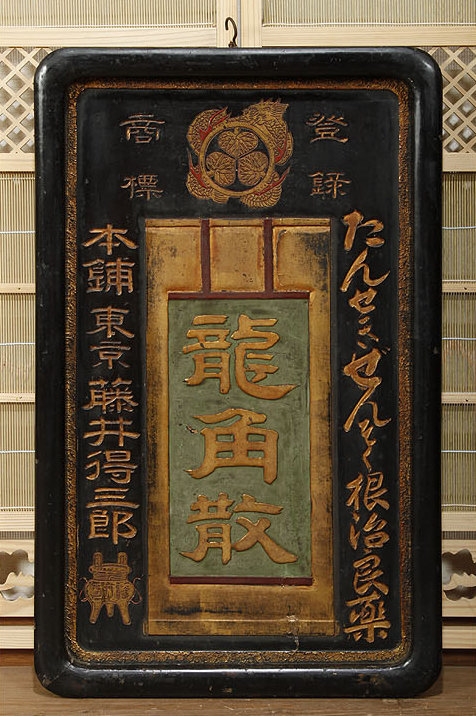 登錄
商標
たんせきぜんそく根治良藥
龍角散
本鋪 東京 藤井得三郎